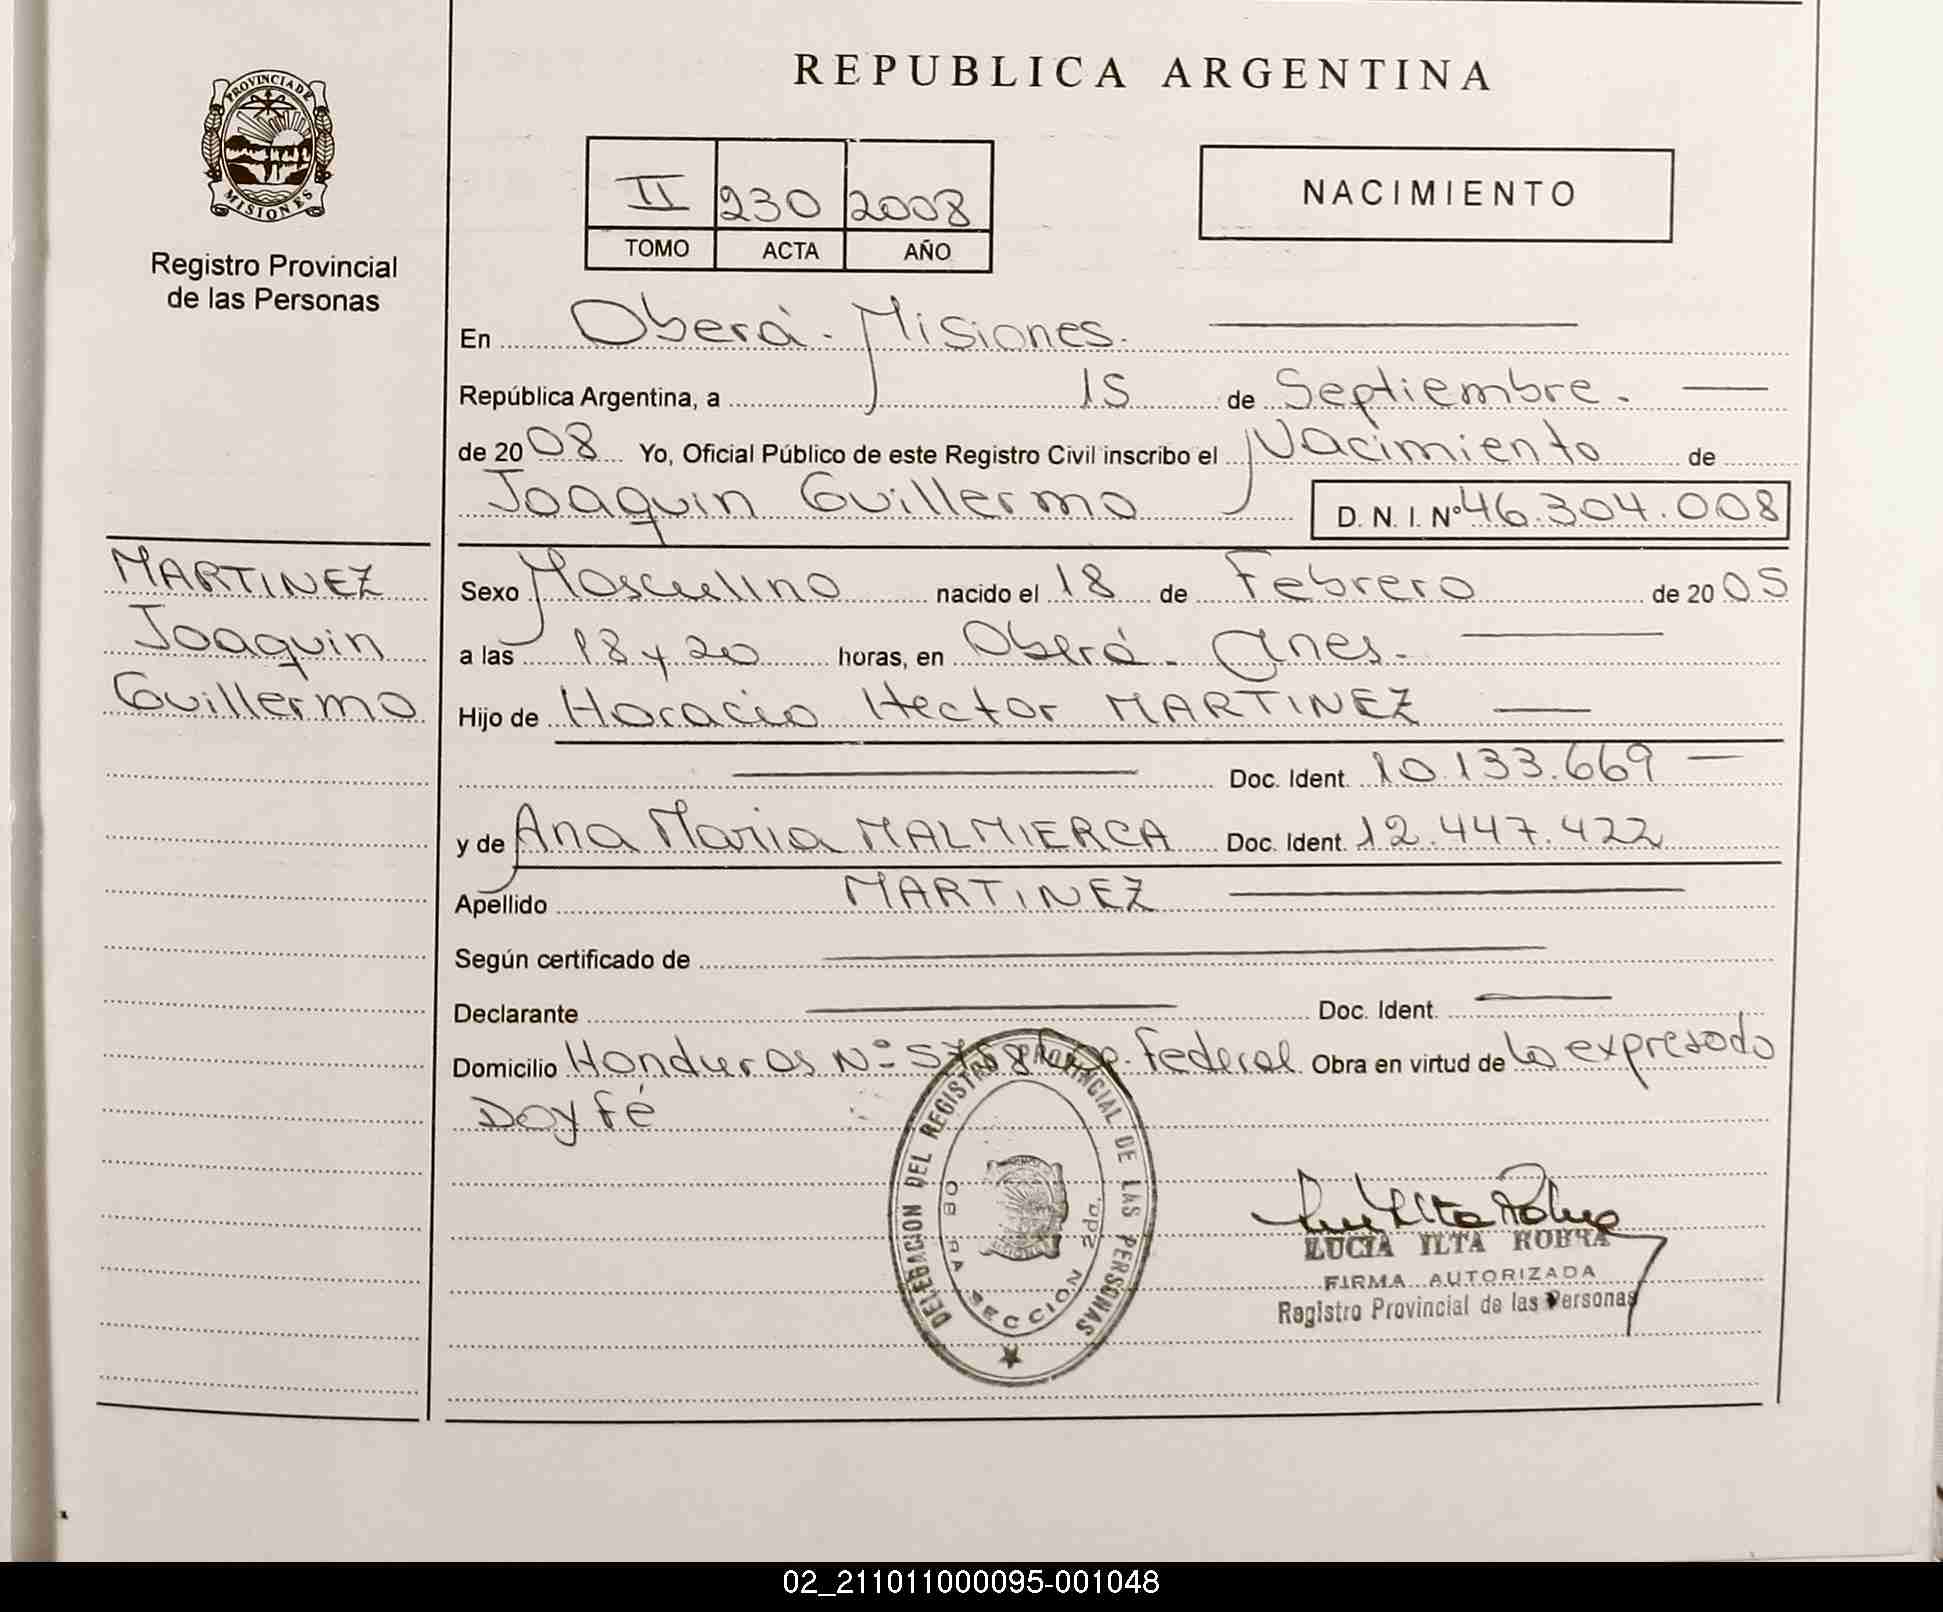 REPUBLICA ARGENTINA
PROVINCIA DE MISIONES
Registro Provincial
de las Personas
II 230 2008
TOMO ACTA AÑO
NACIMIENTO
En Oberá - Misiones.
República Argentina, a 15 de Septiembre.
de 2008 Yo, Oficial Público de este Registro Civil inscribo el Nacimiento de
Joaquin Guillermo D. N. I. Nº 46.304.008
MARTINEZ
Joaquin
Guillermo
Sexo Masculino nacido el 18 de Febrero de 2005
a las 18 y 20 horas, en Oberá - Mnes.
Hijo de Horacio Hector MARTINEZ
Doc. Ident. 10.133.669
y de Ana Maria MALMIERCA Doc. Ident. 12.447.422
Apellido MARTINEZ
Según certificado de
Declarante Doc. Ident.
Domicilio Honduras Nº 5768 Cap. Federal Obra en virtud de lo expresado
Doy fé
DELEGACION DEL REGISTRO PROVINCIAL DE LAS PERSONAS
OBERA SECCION 2da.
LUCIA ILTA ROBRA
FIRMA AUTORIZADA
Registro Provincial de las Personas
02_211011000095-001048